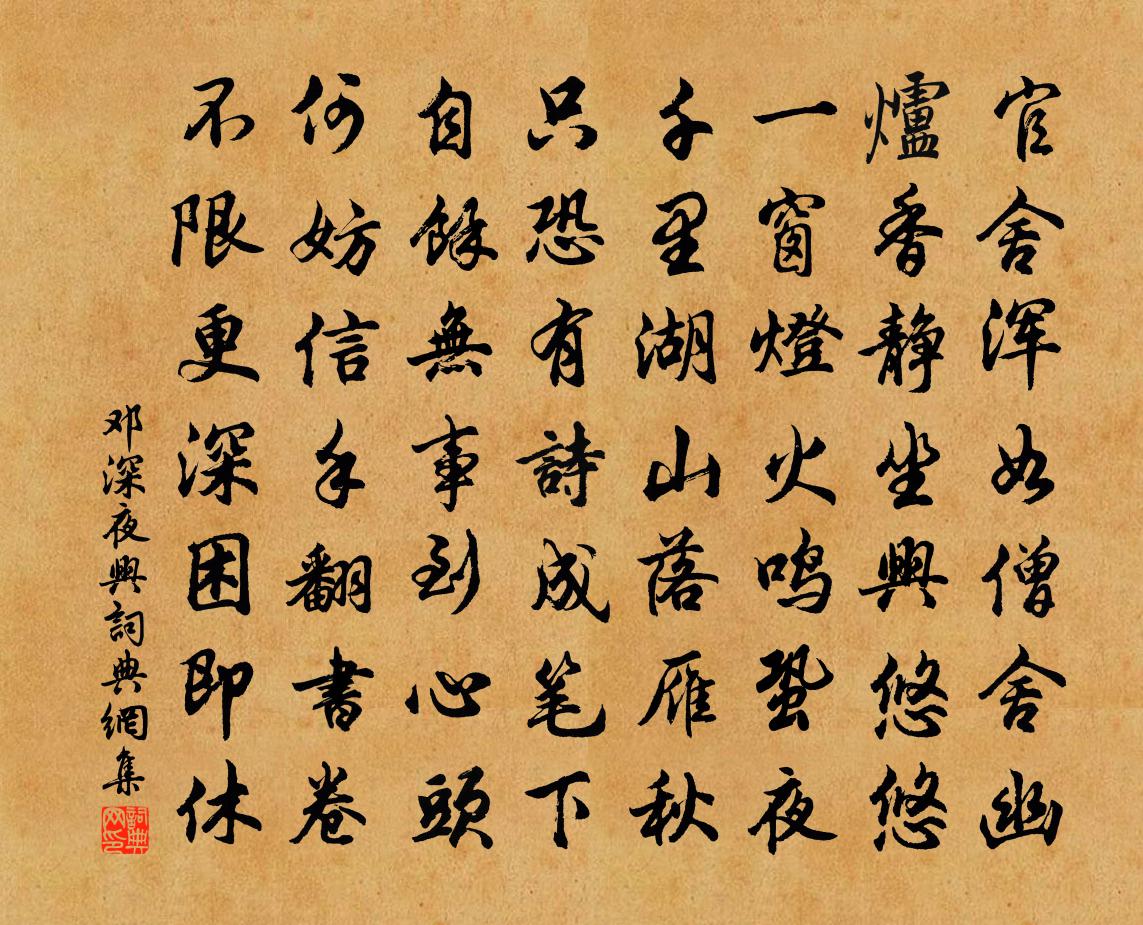 官舍浑如僧舍幽
爐香静坐興悠悠
一窗燈火鸣蛩夜
千里湖山落雁秋
只恐有詩成笔下
自餘無事到心頭
何妨信手翻書卷
不限更深困即休
邓深夜興詞典網集
詞典网印